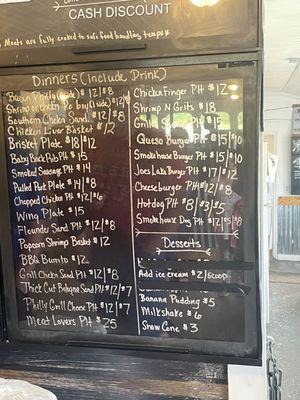 CASH DISCOUNT
Meats are fully cooked to safe food handling temps
Dinners (Include Drink)
Bacon Philly (1 side) $12/$8
Shrimp or chckn Po boy (1 side) $12/
Southern Chckn Sand $12/$8
Chicken Liver Basket $12
Brisket Plate $18/$12
Baby Back Rib Plt $15
Smoked Sausage $14
Pulled Pork Plate $14/$8
Chopped Chicken $12/$6
Wing Plate $15
Flounder Sand Plt $12/$8
Popcorn Shrimp Basket $12
BBQ Burrito $12
Grill Chckn Sand Plt $12/$8
Thick Cut Bologna Sand Plt $12/$7
Philly Grill Cheese Plt $12/$7
Meat Lovers Plt $25
Chicken Finger Plt $12
Shrimp N Grits $18
Queso Burger Plt $15/$10
Smokehouse Burger Plt $15/$10
Joes Lake Burger Plt $17/$12
Cheeseburger Plt $12/$8
Hotdog Plt $8/$3/$5
Smokehouse Dog Plt $12/$5/$8
Desserts
Add ice cream $2/scoop
Banana Pudding $5
Milkshake $6
Snow Cone $3